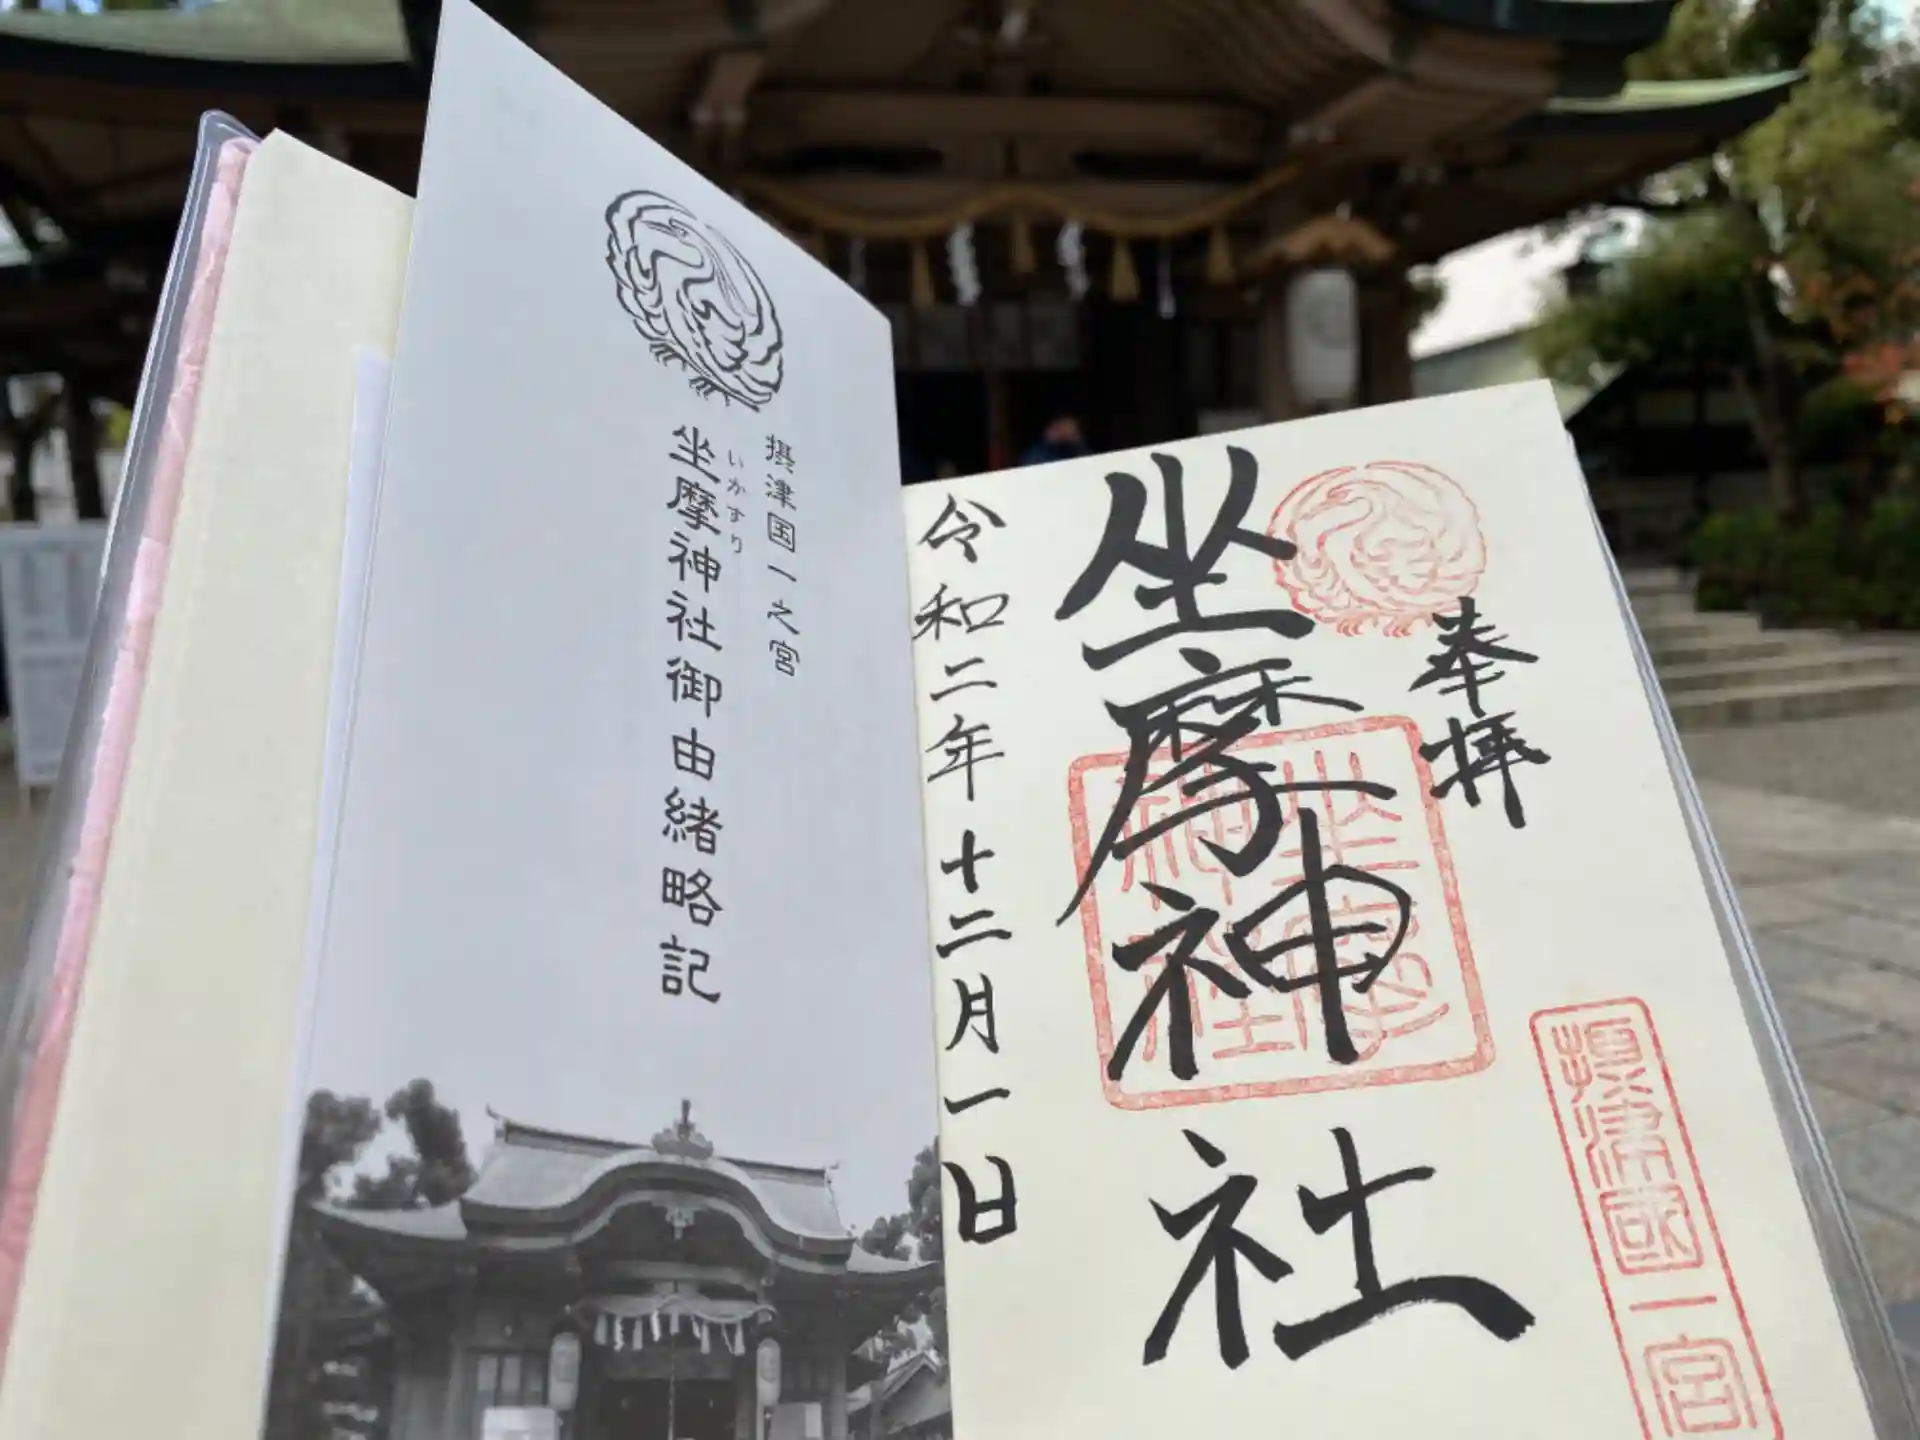 摂津国一之宮
いかすり
坐摩神社御由緒略記
奉拝
坐摩神社
令和二年十二月一日
坐摩
神社
摂津國一宮